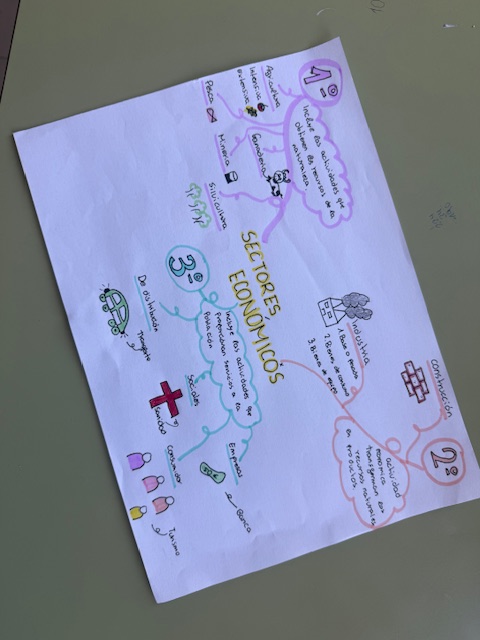 SECTORES
ECONOMICOS
1º
Incluye las actividades que
obtienen los recursos de la
naturaleza
Agricultura
Intensiva
extensiva
Ganadería
Pesca
Minería
Silvicultura
2º
actividad
económica
transforman los
recursos naturales
en productos
construcción
Industria
1. Base o pesada
2. Bienes de consumo
3. Bienes de equipo
3º
Incluye las actividades que
proporcionan servicios a la
población
De distribución
Transporte
sociales
sanidad
Empresas
Banca
Consumidor
Turismo